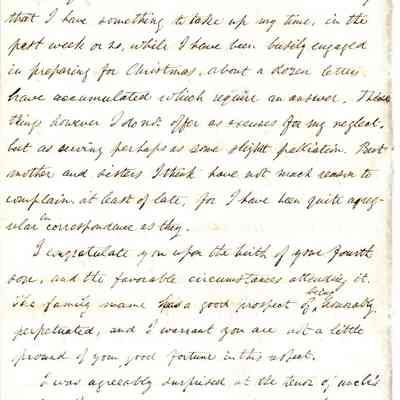 that I have something to take up my time, in the
past week or so, while I have been busily engaged
in preparing for Christmas, about a dozen letters
have accumulated which require an answer. These
things however I do not offer as excuses for my neglect,
but as serving perhaps as some slight palliation. But
mother and sisters I think have not much reason to
complain, at least of late, for I have been quite a reg-
ular in correspondence as they.
I congratulate you upon the birth of your fourth
son, and the favorable circumstances attending it.
The family name has a good prospect of being honorably
perpetuated, and I warrant you are not a little
proud of your good fortune in this respect.
I was agreeably surprised at the tenor of uncle's